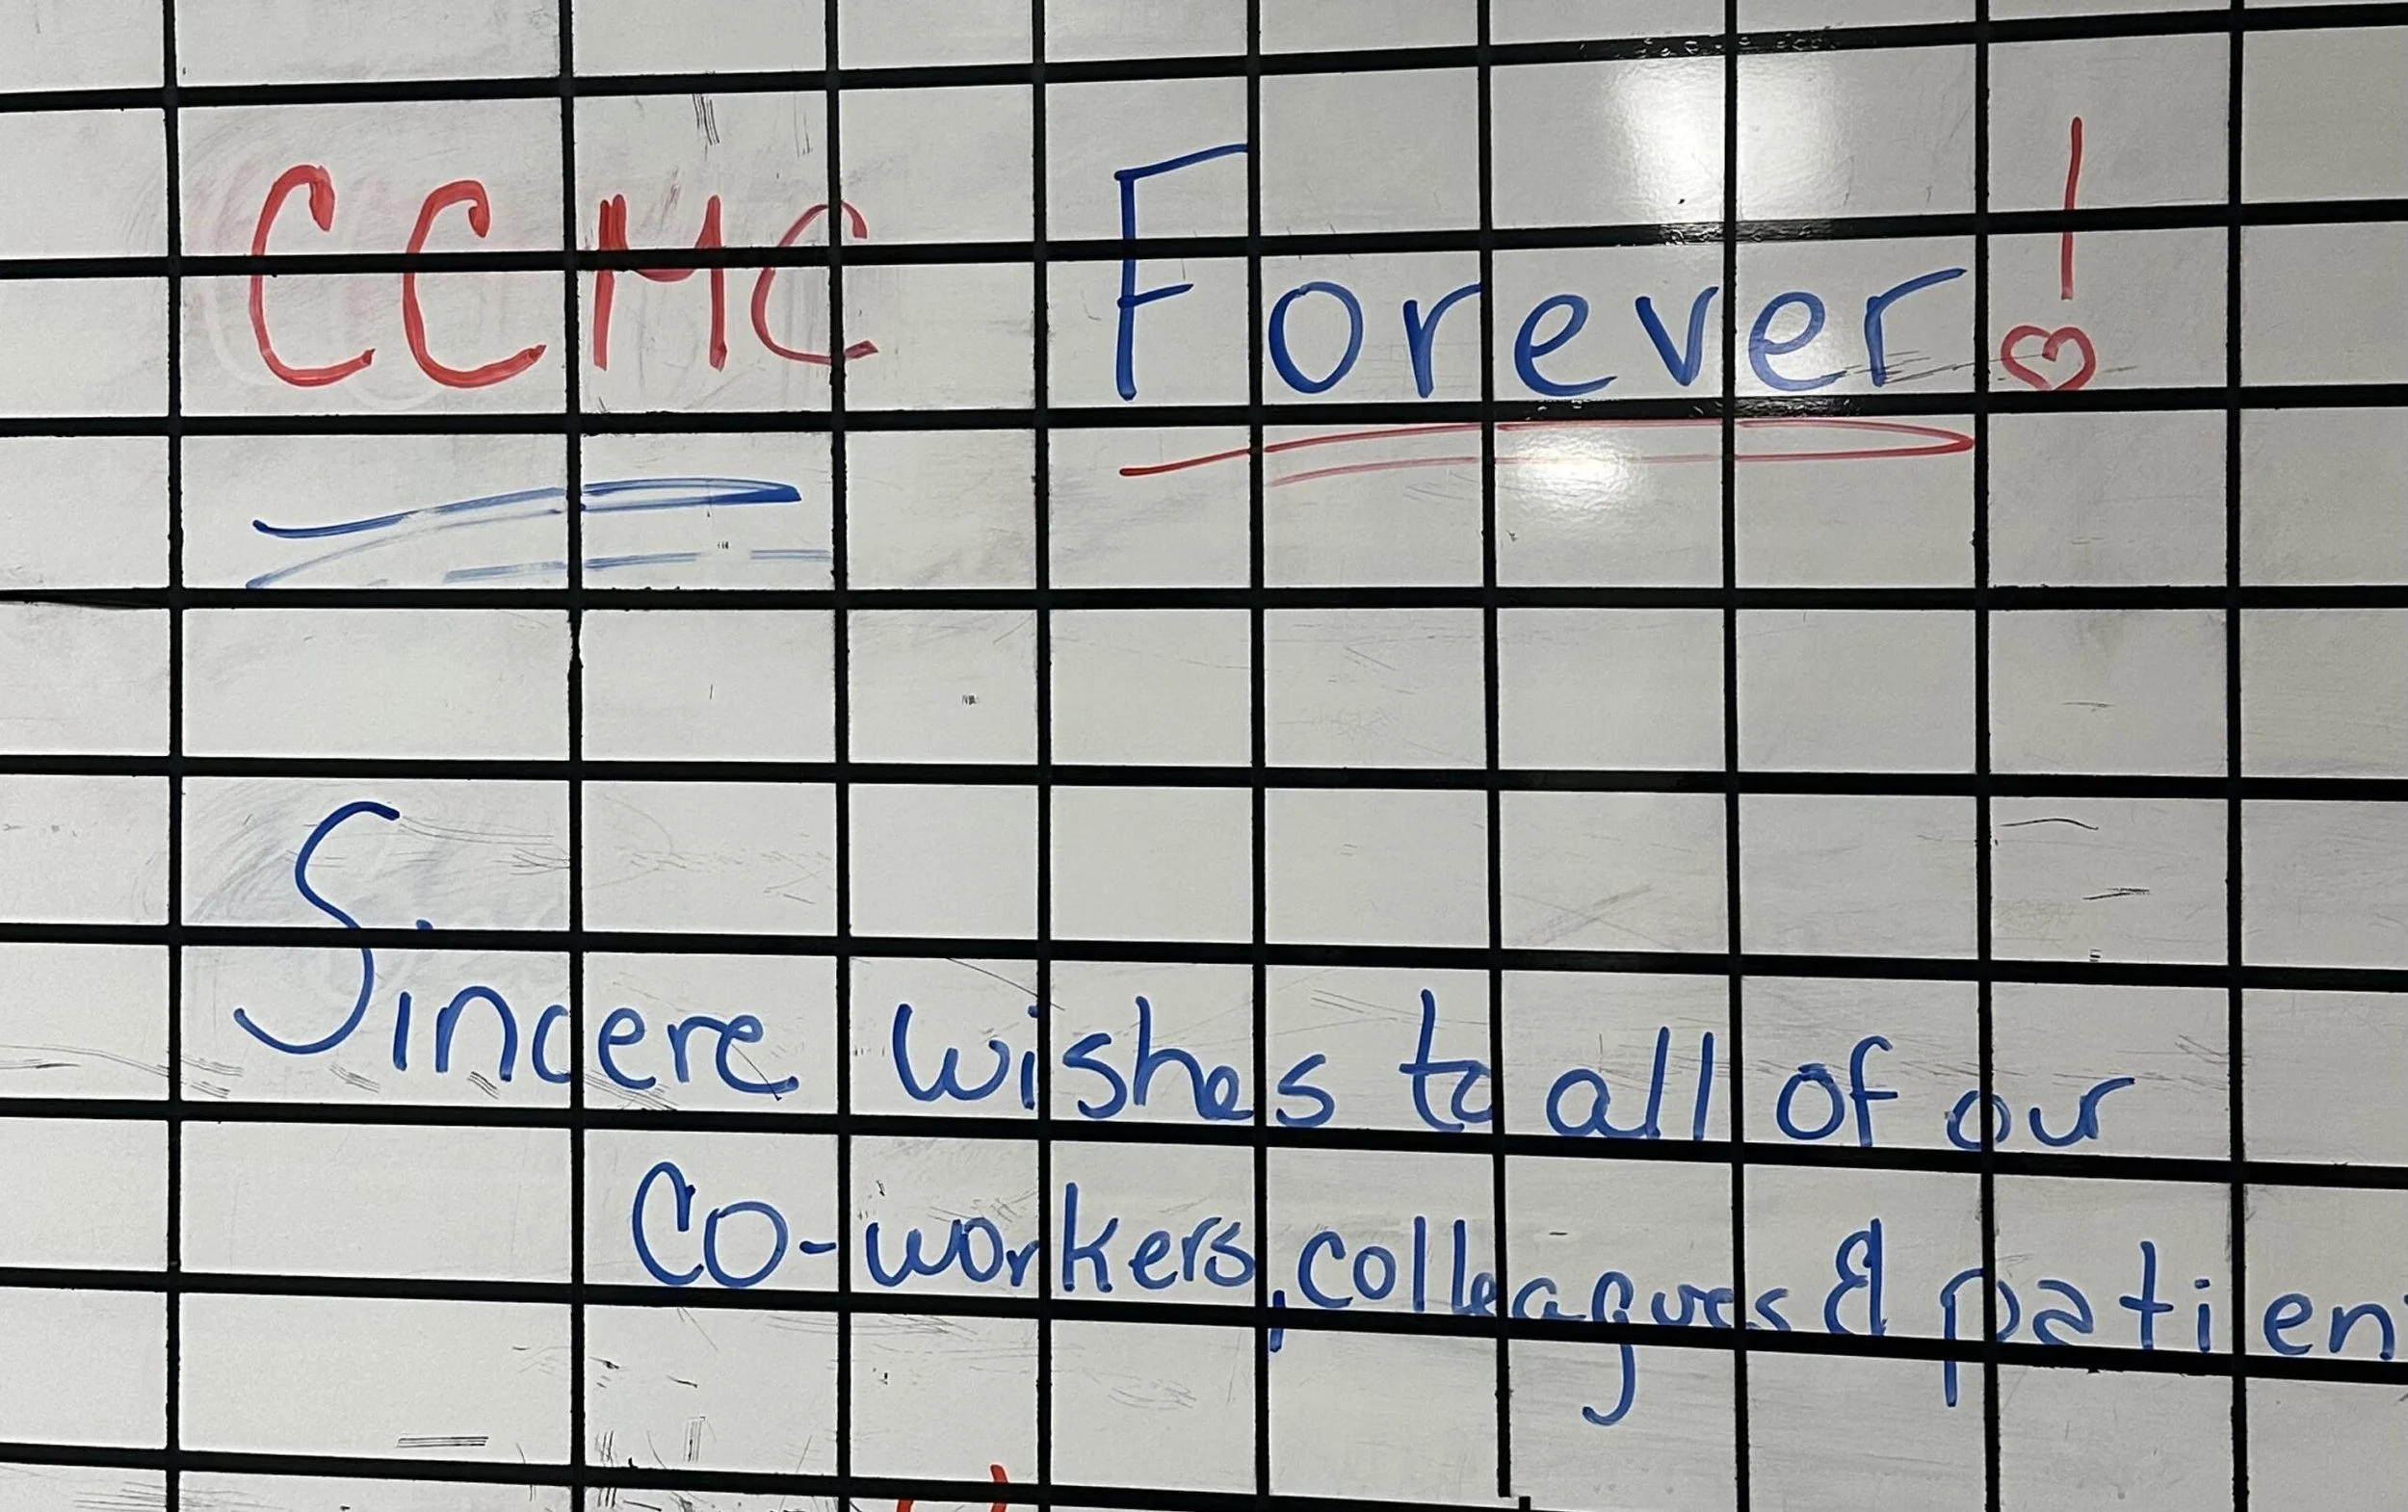 CCMC Forever!
Sincere wishes to all of our
Co-workers, colleagues & patien